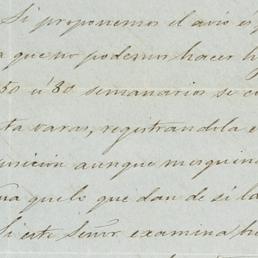 Si proponemos el avio es p
a que no podemos hacer h
50 ú 80 semanarios se c
ta varas, registrandola e
sicion aunque mesquin
na que lo que dan de sí la
Si este Señor examina h